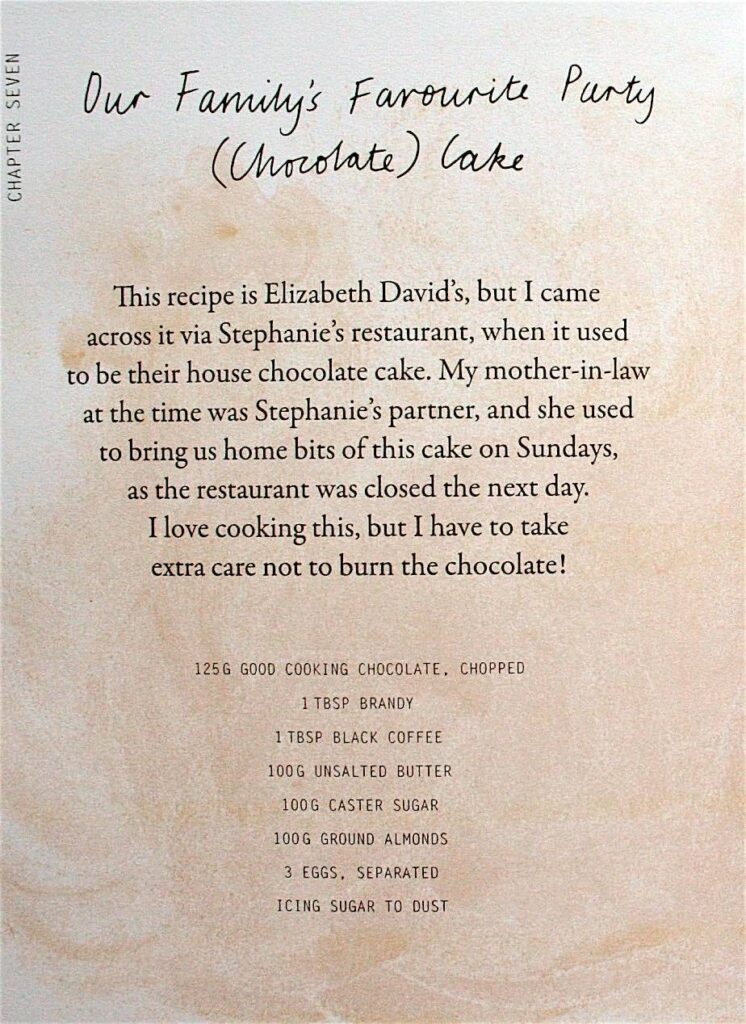 CHAPTER SEVEN
Our Family's Favourite Party
(Chocolate) Cake
This recipe is Elizabeth David's, but I came
across it via Stephanie's restaurant, when it used
to be their house chocolate cake. My mother-in-law
at the time was Stephanie's partner, and she used
to bring us home bits of this cake on Sundays,
as the restaurant was closed the next day.
I love cooking this, but I have to take
extra care not to burn the chocolate!
125G GOOD COOKING CHOCOLATE, CHOPPED
1 TBSP BRANDY
1 TBSP BLACK COFFEE
100G UNSALTED BUTTER
100G CASTER SUGAR
100G GROUND ALMONDS
3 EGGS, SEPARATED
ICING SUGAR TO DUST